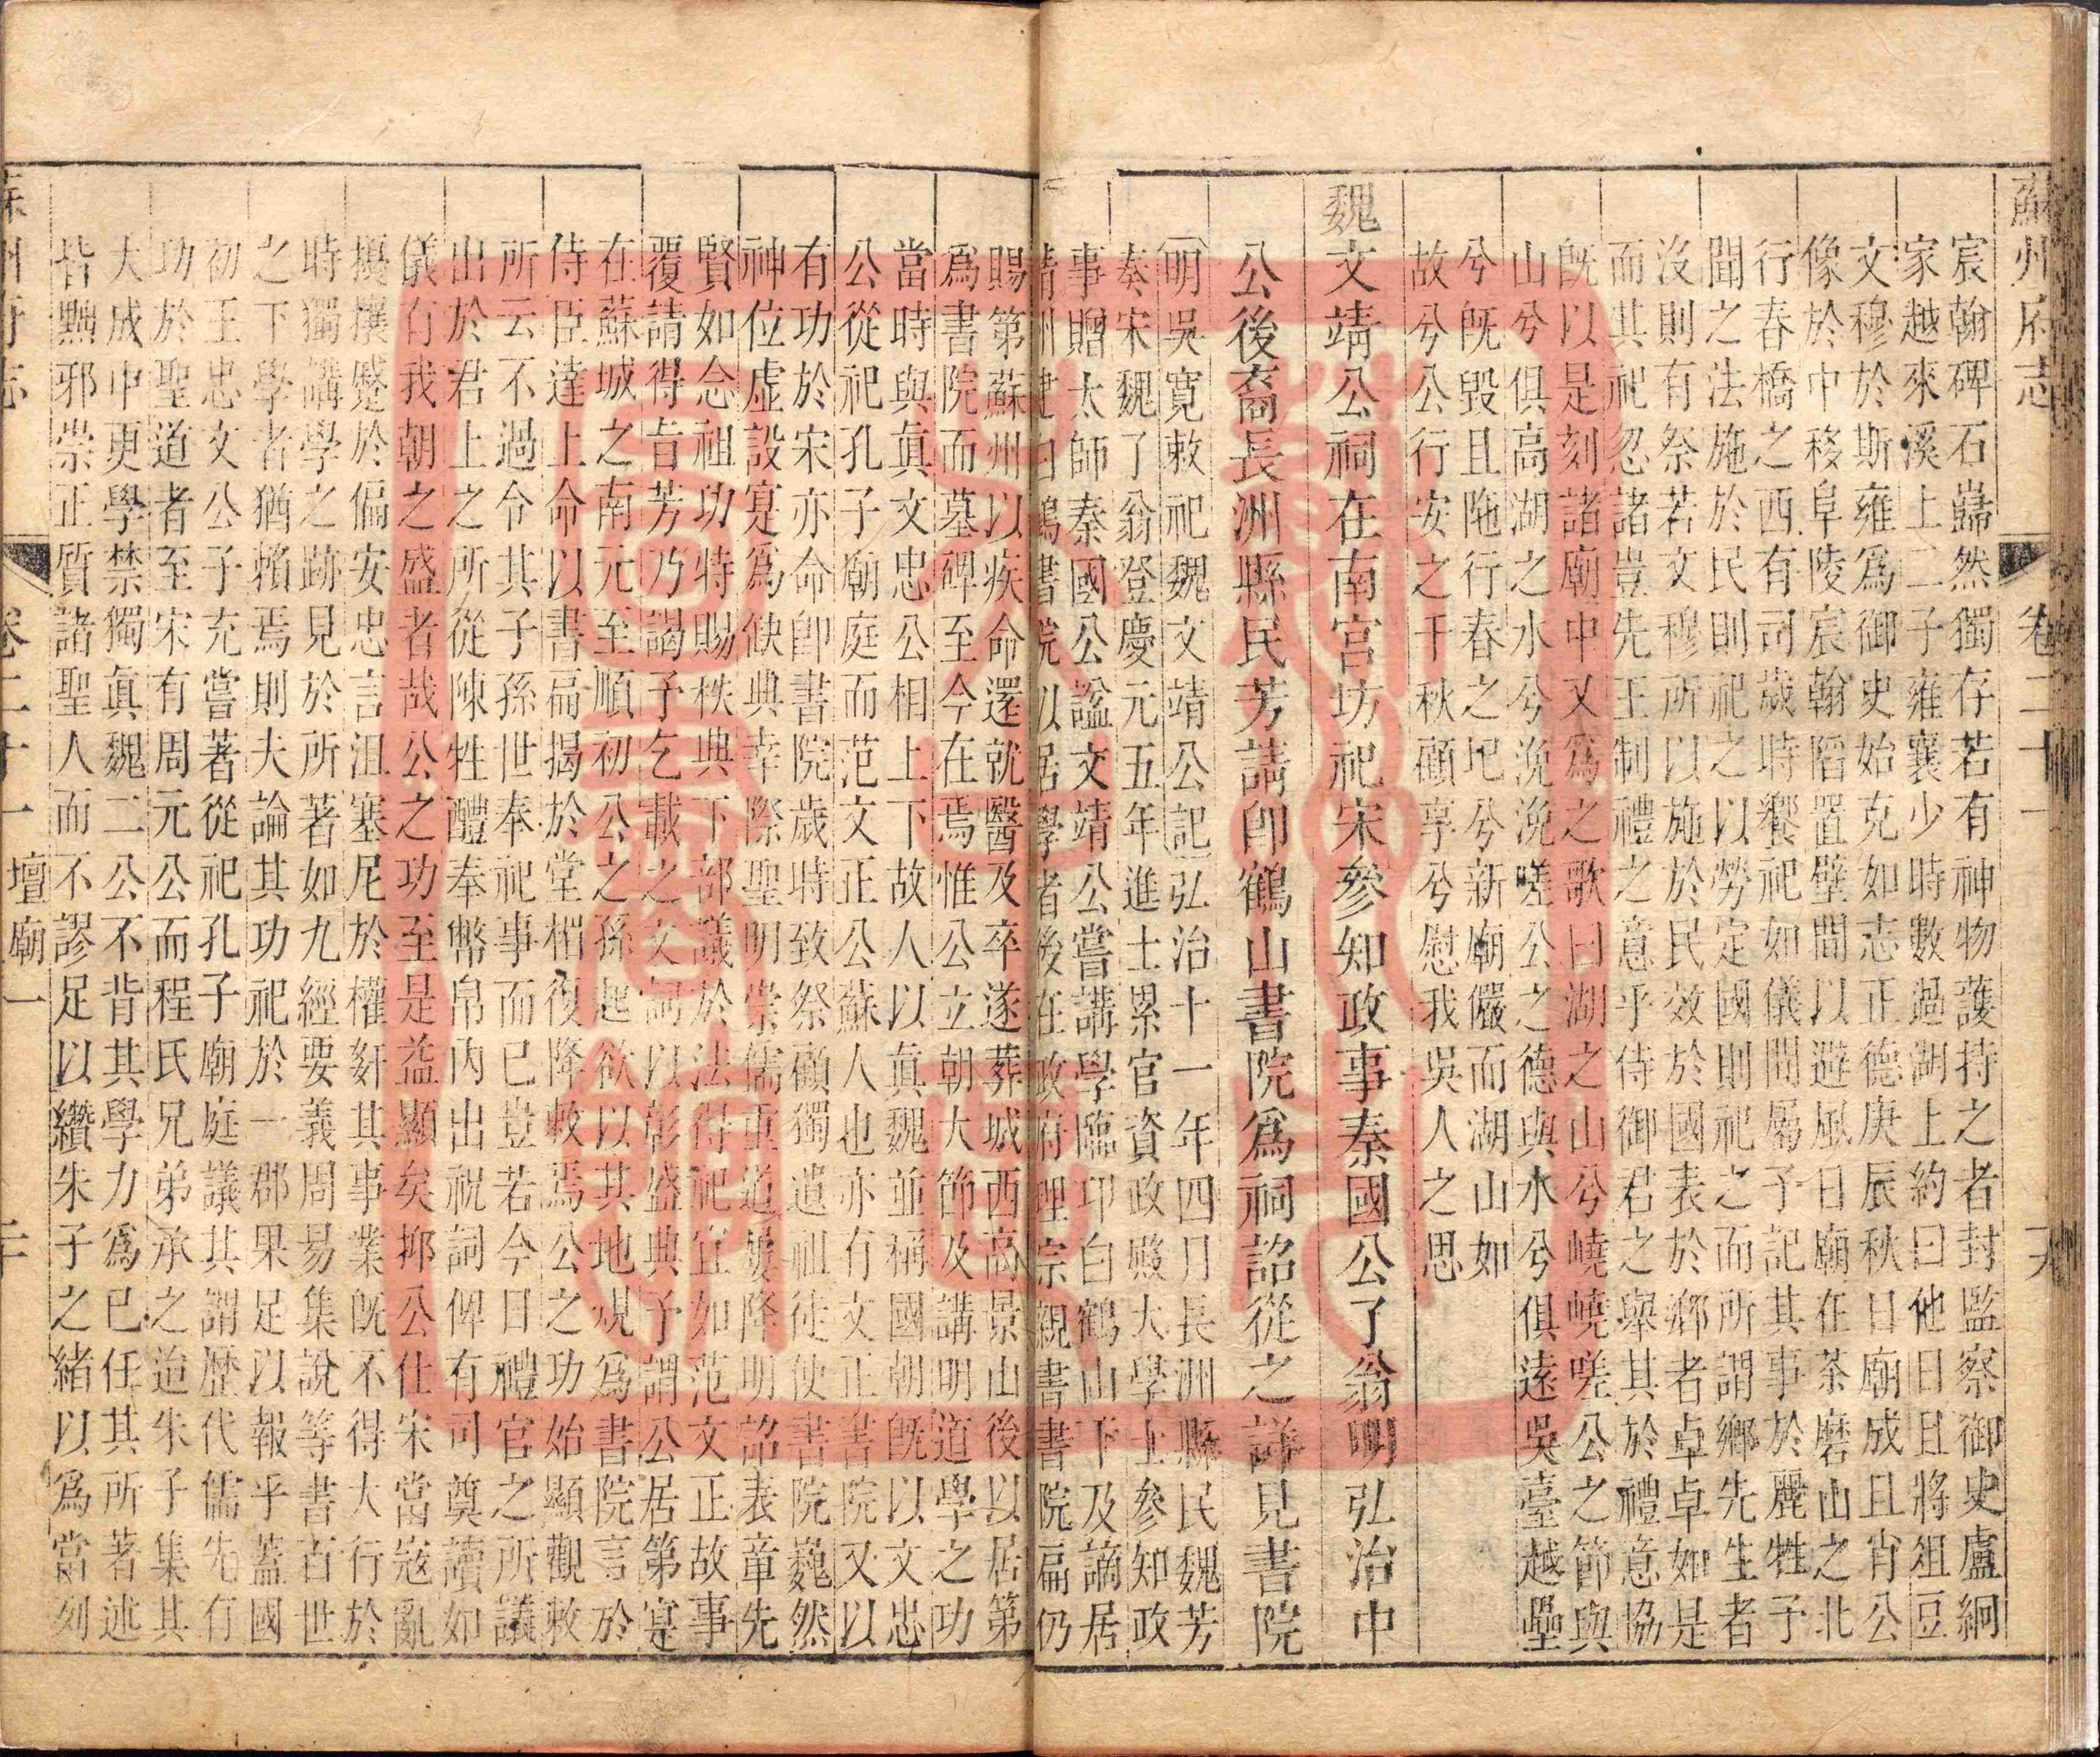 蘇州府志 卷二十一
宸翰碑石巋然獨存若有神物護持之者封監察御史盧綱
家越來溪上二子雍襄少時數過湖上約曰他日且將俎豆
文穆於斯雍爲御史始克如志正德庚辰秋日廟成且肖公
像於中移阜陵宸翰䧟置壁間以避風日廟在茶磨山之北
行春橋之西有司歲時饗祀如儀間屬予記其事於麗牲予
聞之法施於民則祀之以勞定國則祀之而所謂鄉先生者
沒則有祭若文穆所以施於民效於國表於鄉者卓卓如是
而其祀忽諸豈先王制禮之意乎侍御君之舉其於禮意協
旣以是刻諸廟中又爲之歌曰湖之山兮嶢嶢嗟公之節與
山兮俱高湖之水兮浼浼嗟公之德與水兮俱遠吳臺越壘
兮旣毀且阤行春之圯兮新廟儼而湖山如
故兮公行安之千秋顧享兮慰我吳人之思
魏文靖公祠在南宮坊祀宋參知政事秦國公了翁明弘治中
公後裔長洲縣民芳請卽鶴山書院爲祠詔從之詳見書院
明吳寬敕祀魏文靖公記弘治十一年四月長洲縣民魏芳
奏宋魏了翁登慶元五年進士累官資政殿大學士參知政
事贈太師秦國公諡文靖公嘗講學臨卭白鶴山下及謫居
靖州建白鶴書院以居學者後在政府理宗親書書院扁仍
賜第蘇州以疾命還就醫及卒遂葬城西高景山後以居第
爲書院而墓碑至今在焉惟公立朝大節及講明道學之功
當時與眞文忠公相上下故人以眞魏並稱國朝旣以文忠
公從祀孔子廟庭而范文正公蘇人也亦有文正書院又以
有功於宋亦命卽書院歲時致祭顧獨遺祖徒使書院巍然
神位虛設寔爲缺典幸際聖明崇儒重道屢降明詔表章先
賢如念祖功特賜秩典下部議於法得祀宜如范文正故事
覆請得旨芳乃謁予乞載之文詞以彰盛典予謂公居第寔
在蘇城之南元至順初公之孫起欲以其地規爲書院言於
侍臣達上命以書扁揭於堂楣復降敕焉公之功始顯觀敕
所云不過令其子孫世奉祀事而已豈若今日禮官之所議
出於君上之所從陳牲醴奉幣帛內出祝詞俾有司奠讀如
儀有我朝之盛者哉公之功至是益顯矣抑公仕宋當寇亂
擾攘蹙於偏安忠言沮塞尼於權姦其事業旣不得大行於
時獨講學之跡見於所著如九經要義周易集說等書百世
之下學者猶賴焉則夫論其功祀於一郡果足以報乎蓋國
初王忠文公子充嘗著從祀孔子廟庭議其謂歷代儒先有
功於聖道者至宋有周元公而程氏兄弟承之迨朱子集其
大成中更學禁獨眞魏二公不背其學力爲己任其所著述
皆黜邪崇正質諸聖人而不謬足以纘朱子之緒以爲當列
卷二十一 壇廟一